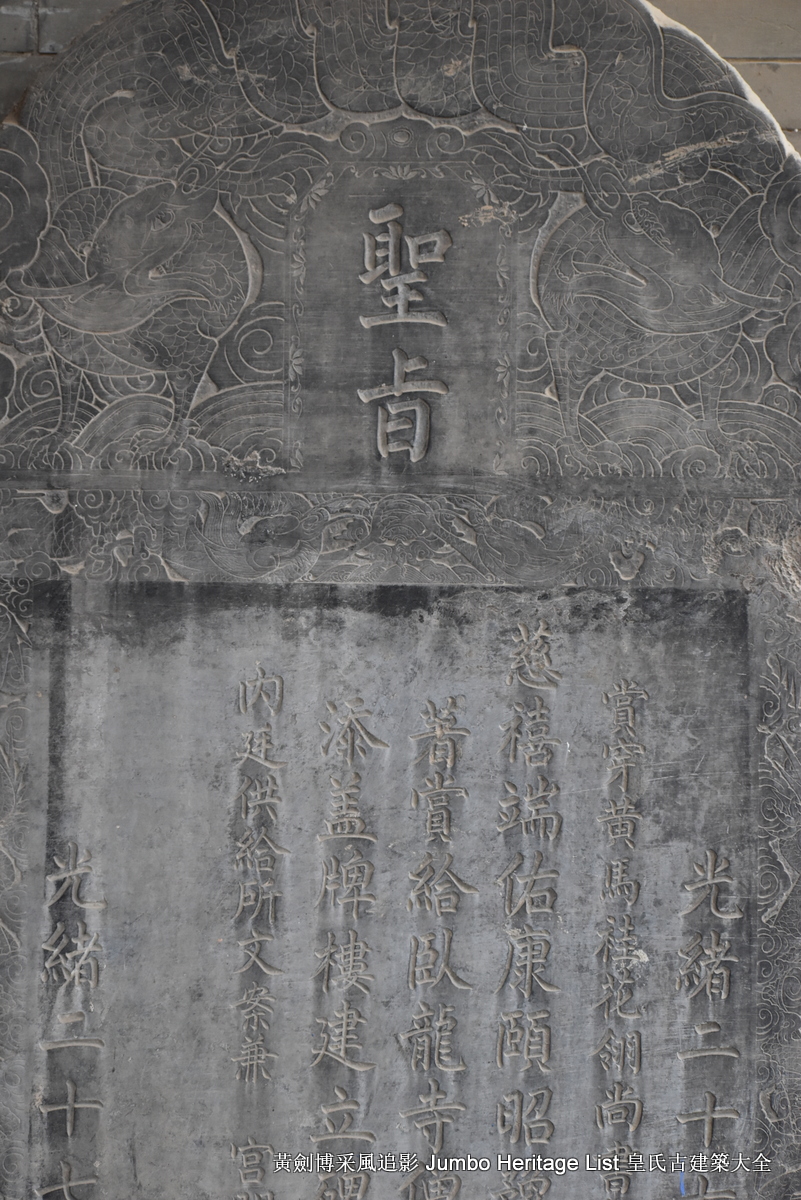 聖旨
光緒二十七
賞穿黃馬褂花翎尚書
慈禧端佑康頤昭豫
著賞給臥龍寺
添盖牌樓建立碑
內廷供給所文案兼 宮
光緒二十七
黃劍博采風追影 Jumbo Heritage List 皇氏古建築大全